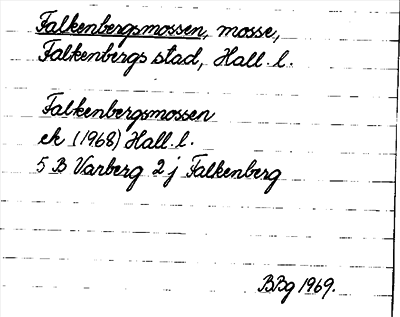 Falkenbergsmossen, mosse,
Falkenbergs stad, Hall. l.
Falkenbergsmossen
ek (1968) Hall. l.
5 B Varberg 2 j Falkenberg
BBg 1969.